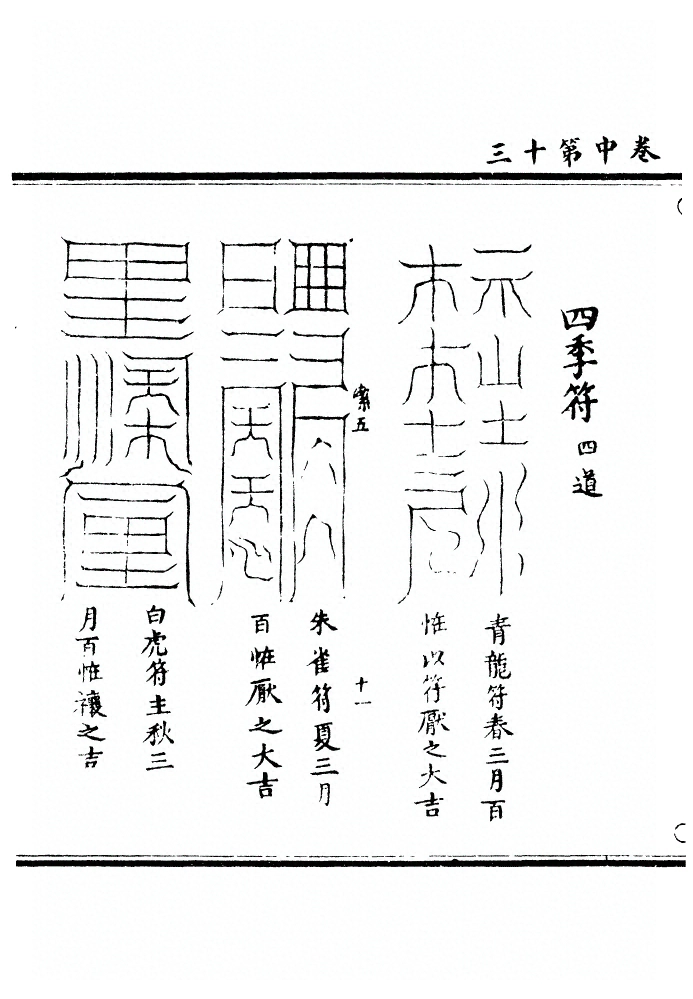 卷中第十三
四季符四道
青龍符春三月百
恠以符厭之大吉
索五
十一
朱雀符夏三月
百恠厭之大吉
白虎符主秋三
月百恠禳之吉